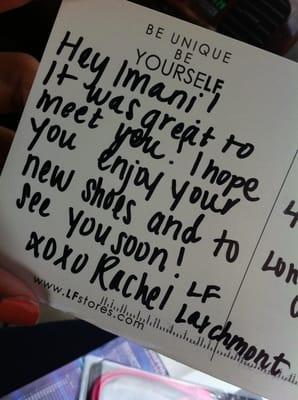 BE UNIQUE
BE
YOURSELF
Hey Imani!
It was great to
meet you. I hope
you enjoy your
new shoes and to
see you soon!
xoxo Rachel LF
Larchmont
www.LFstores.com